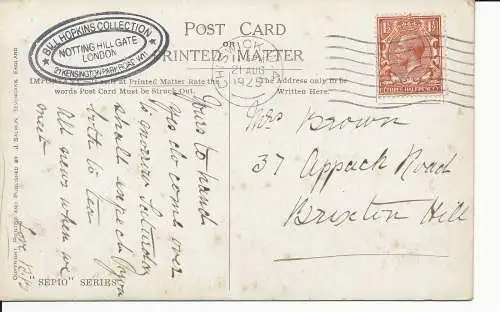 BILL HOPKINS COLLECTION
NOTTING HILL GATE
LONDON
POST CARD
PRINTED MATTER
at Printed Matter Rate the
words Post Card Must be Struck Out.
The Address only to be
Written Here.
CHISWICK
21 AUG
1929
THREE HALFPENCE
Yours to hand
yes do come over
to morrow Saturday
shall expect you
both to tea
All news when we
meet
Mrs Brown
37 Appach Road
Brixton Hill
"SEPIO" SERIES
PUBLISHED BY J. SALMON, SEVENOAKS, ENGLAND